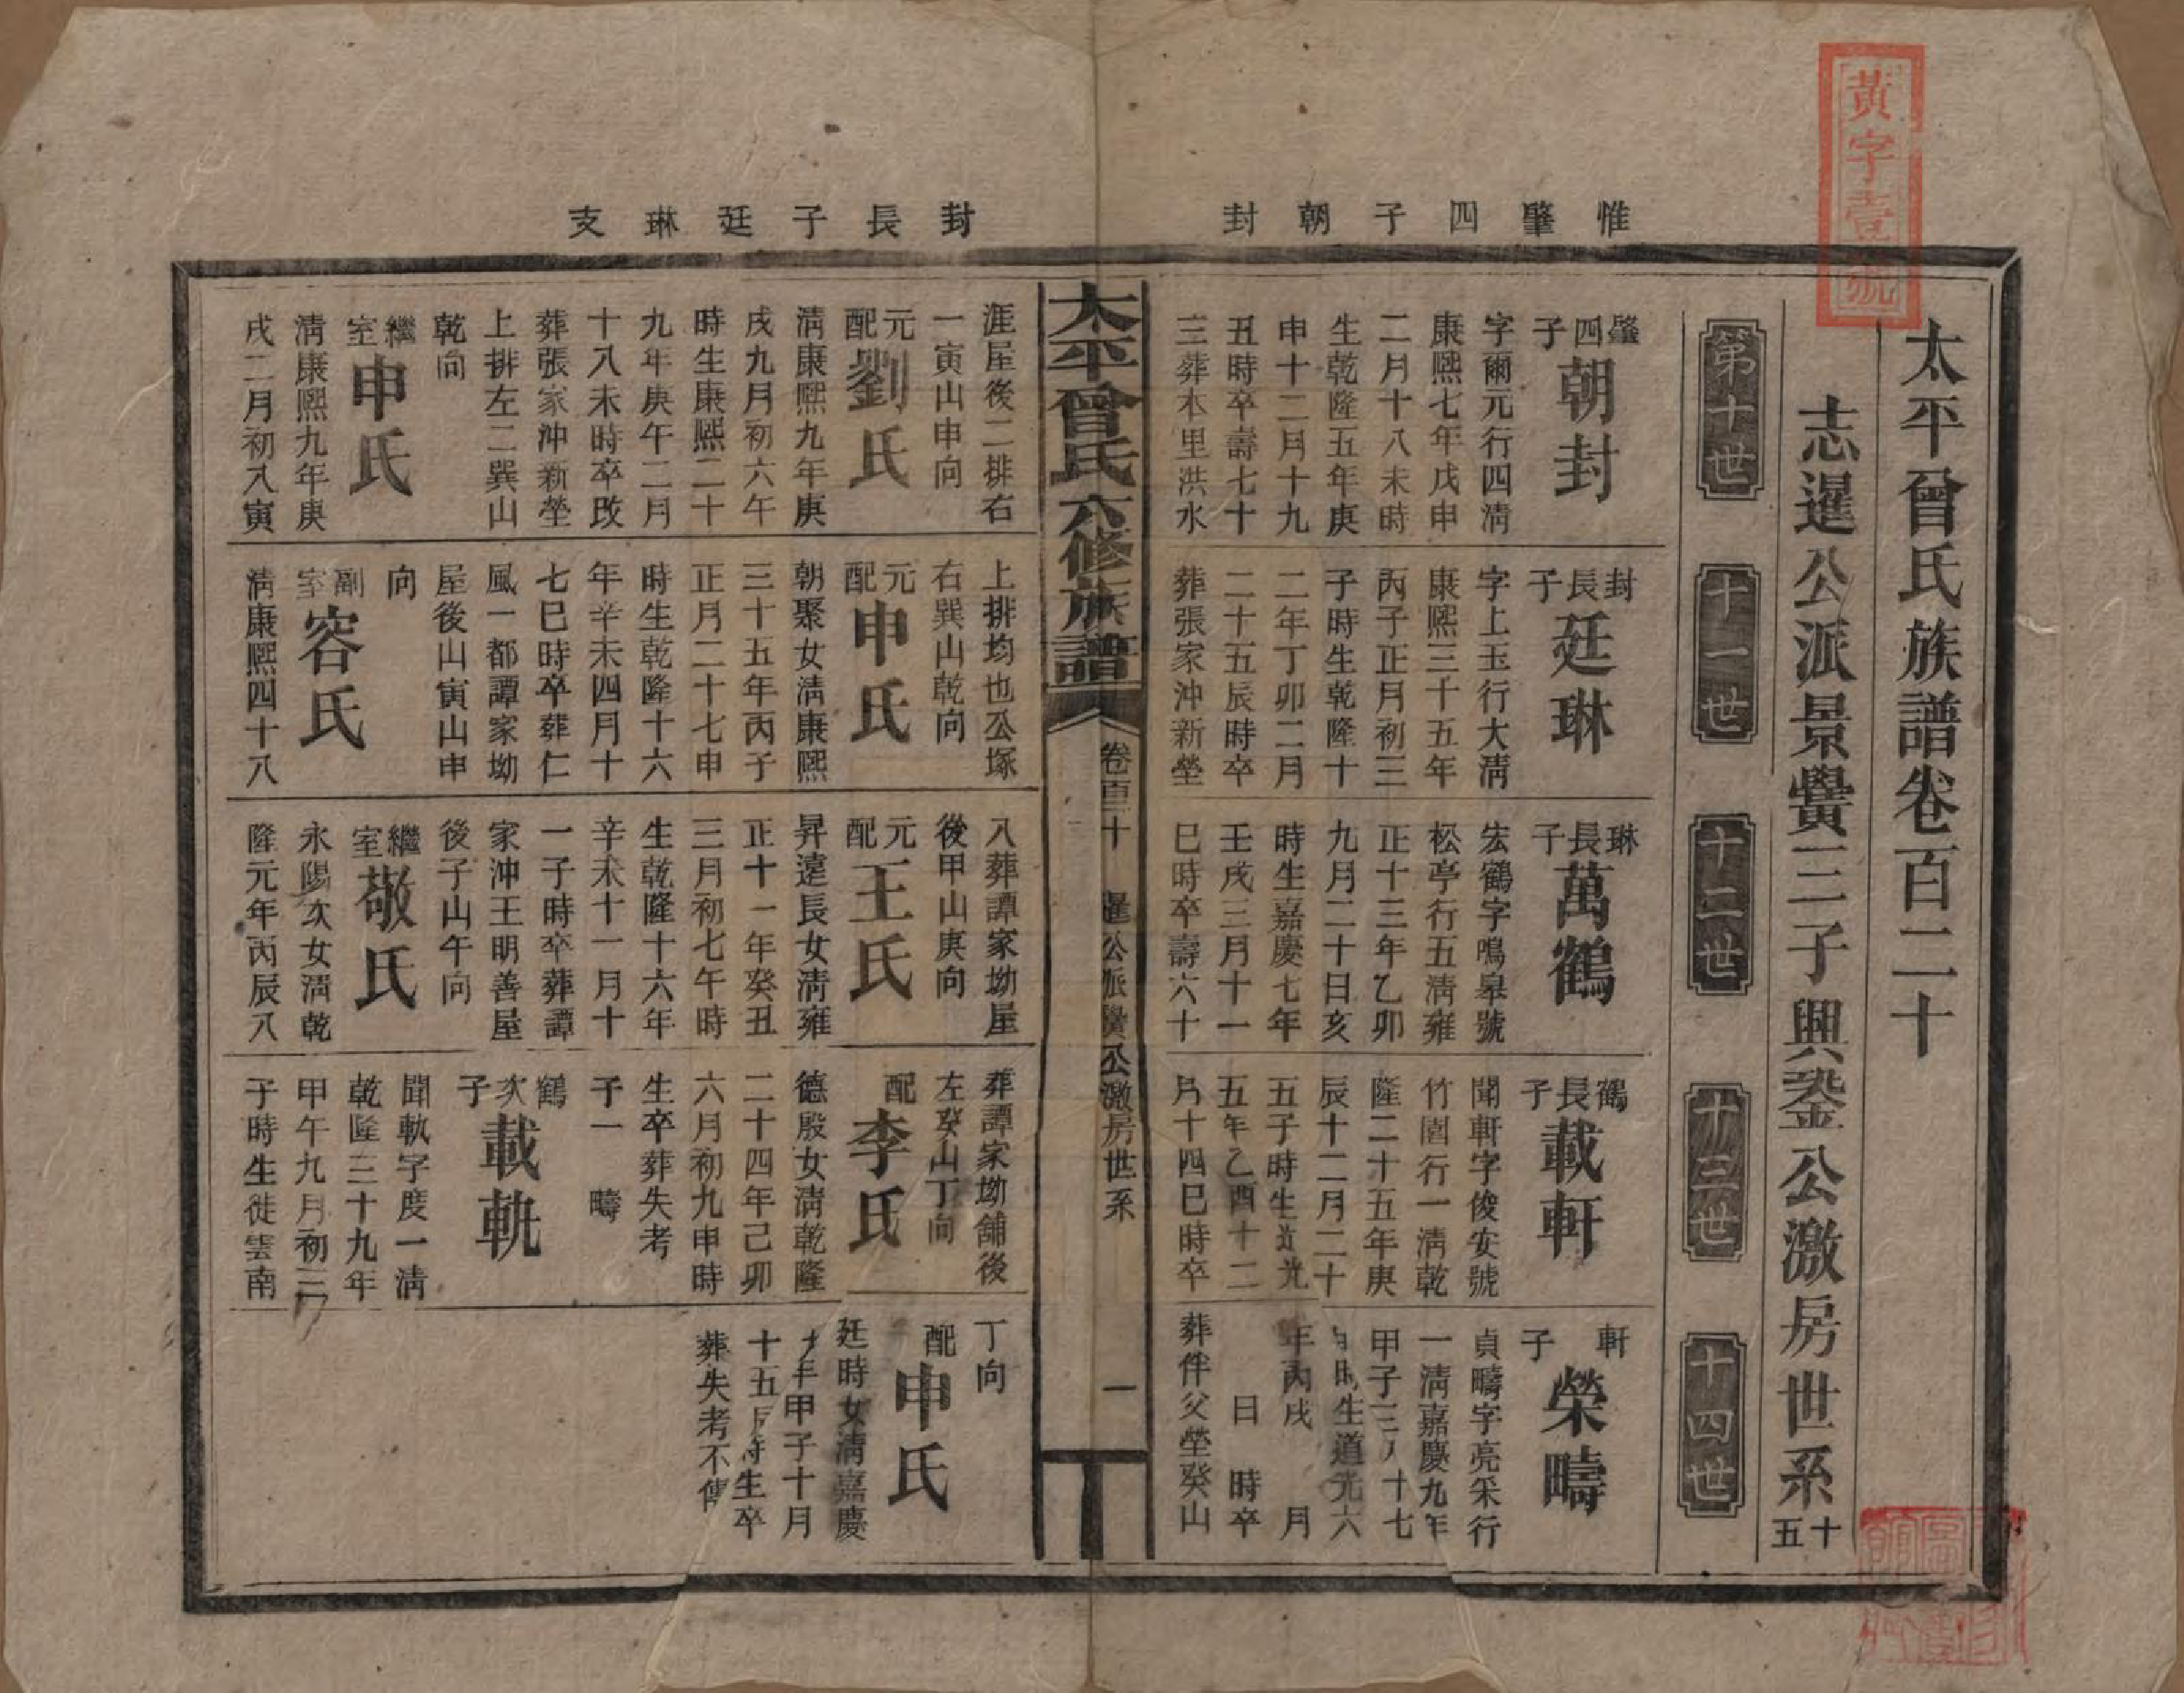 黃字壹號
太平曾氏族譜卷百二十
志暹公派景黌三子興鋆公激房世系
十五
第十世
十一世
十二世
十三世
十四世
惟肇四子朝封
肇四子
朝封
字爾元行四淸
康熙七年戊申
二月十八未時
生乾隆五年庚
申十二月十九
丑時卒壽七十
三葬本里洪水
封長子
廷琳
字上玉行大淸
康熙三十五年
丙子正月初三
子時生乾隆十
二年丁卯二月
二十五辰時卒
葬張家沖新塋
琳長子
萬鶴
宏鶴字鳴皐號
松亭行五淸雍
正十三年乙卯
九月二十日亥
時生嘉慶七年
壬戌三月十一
巳時卒壽六十
鶴長子
載軒
聞軒字俊安號
竹園行一淸乾
隆二十五年庚
辰十二月二十
五子時生道光
五年乙酉十二
月十四巳時卒
軒子
榮疇
貞疇字亮采行
一淸嘉慶九年
甲子三月十七
時生道光六
年丙戌 月
日 時卒
葬伴父塋癸山
太平曾氏六修族譜
卷百二十 暹公派黌公激房世系
一
封長子廷琳支
涯屋後二排右
一寅山申向
元配
劉氏
淸康熙九年庚
戌九月初六午
時生康熙二十
九年庚午二月
十八未時卒改
葬張家沖新塋
上排左二巽山
乾向
繼室
申氏
淸康熙九年庚
戌二月初入寅
上排均也公塚
右巽山乾向
元配
申氏
朝聚女淸康熙
三十五年丙子
正月二十七申
時生乾隆十六
年辛未四月十
七巳時卒葬仁
風一都譚家坳
屋後山寅山申
向
副室
容氏
淸康熙四十八
八葬譚家坳屋
後甲山庚向
元配
王氏
昇遠長女淸雍
正十一年癸丑
三月初七午時
生乾隆十六年
辛未十一月十
一子時卒葬譚
家沖王明善屋
後子山午向
繼室
敬氏
永陽次女淸乾
隆元年丙辰八
葬譚家坳舖後
左癸山丁向
配
李氏
德殷女淸乾隆
二十四年己卯
六月初九申時
生卒葬失考
子一 疇
鶴次子
載軏
聞軏字度一淸
乾隆三十九年
甲午九月初三
子時生徙雲南
丁向
配
申氏
廷時女淸嘉慶
年甲子十月
十五 時生卒
葬失考不傳